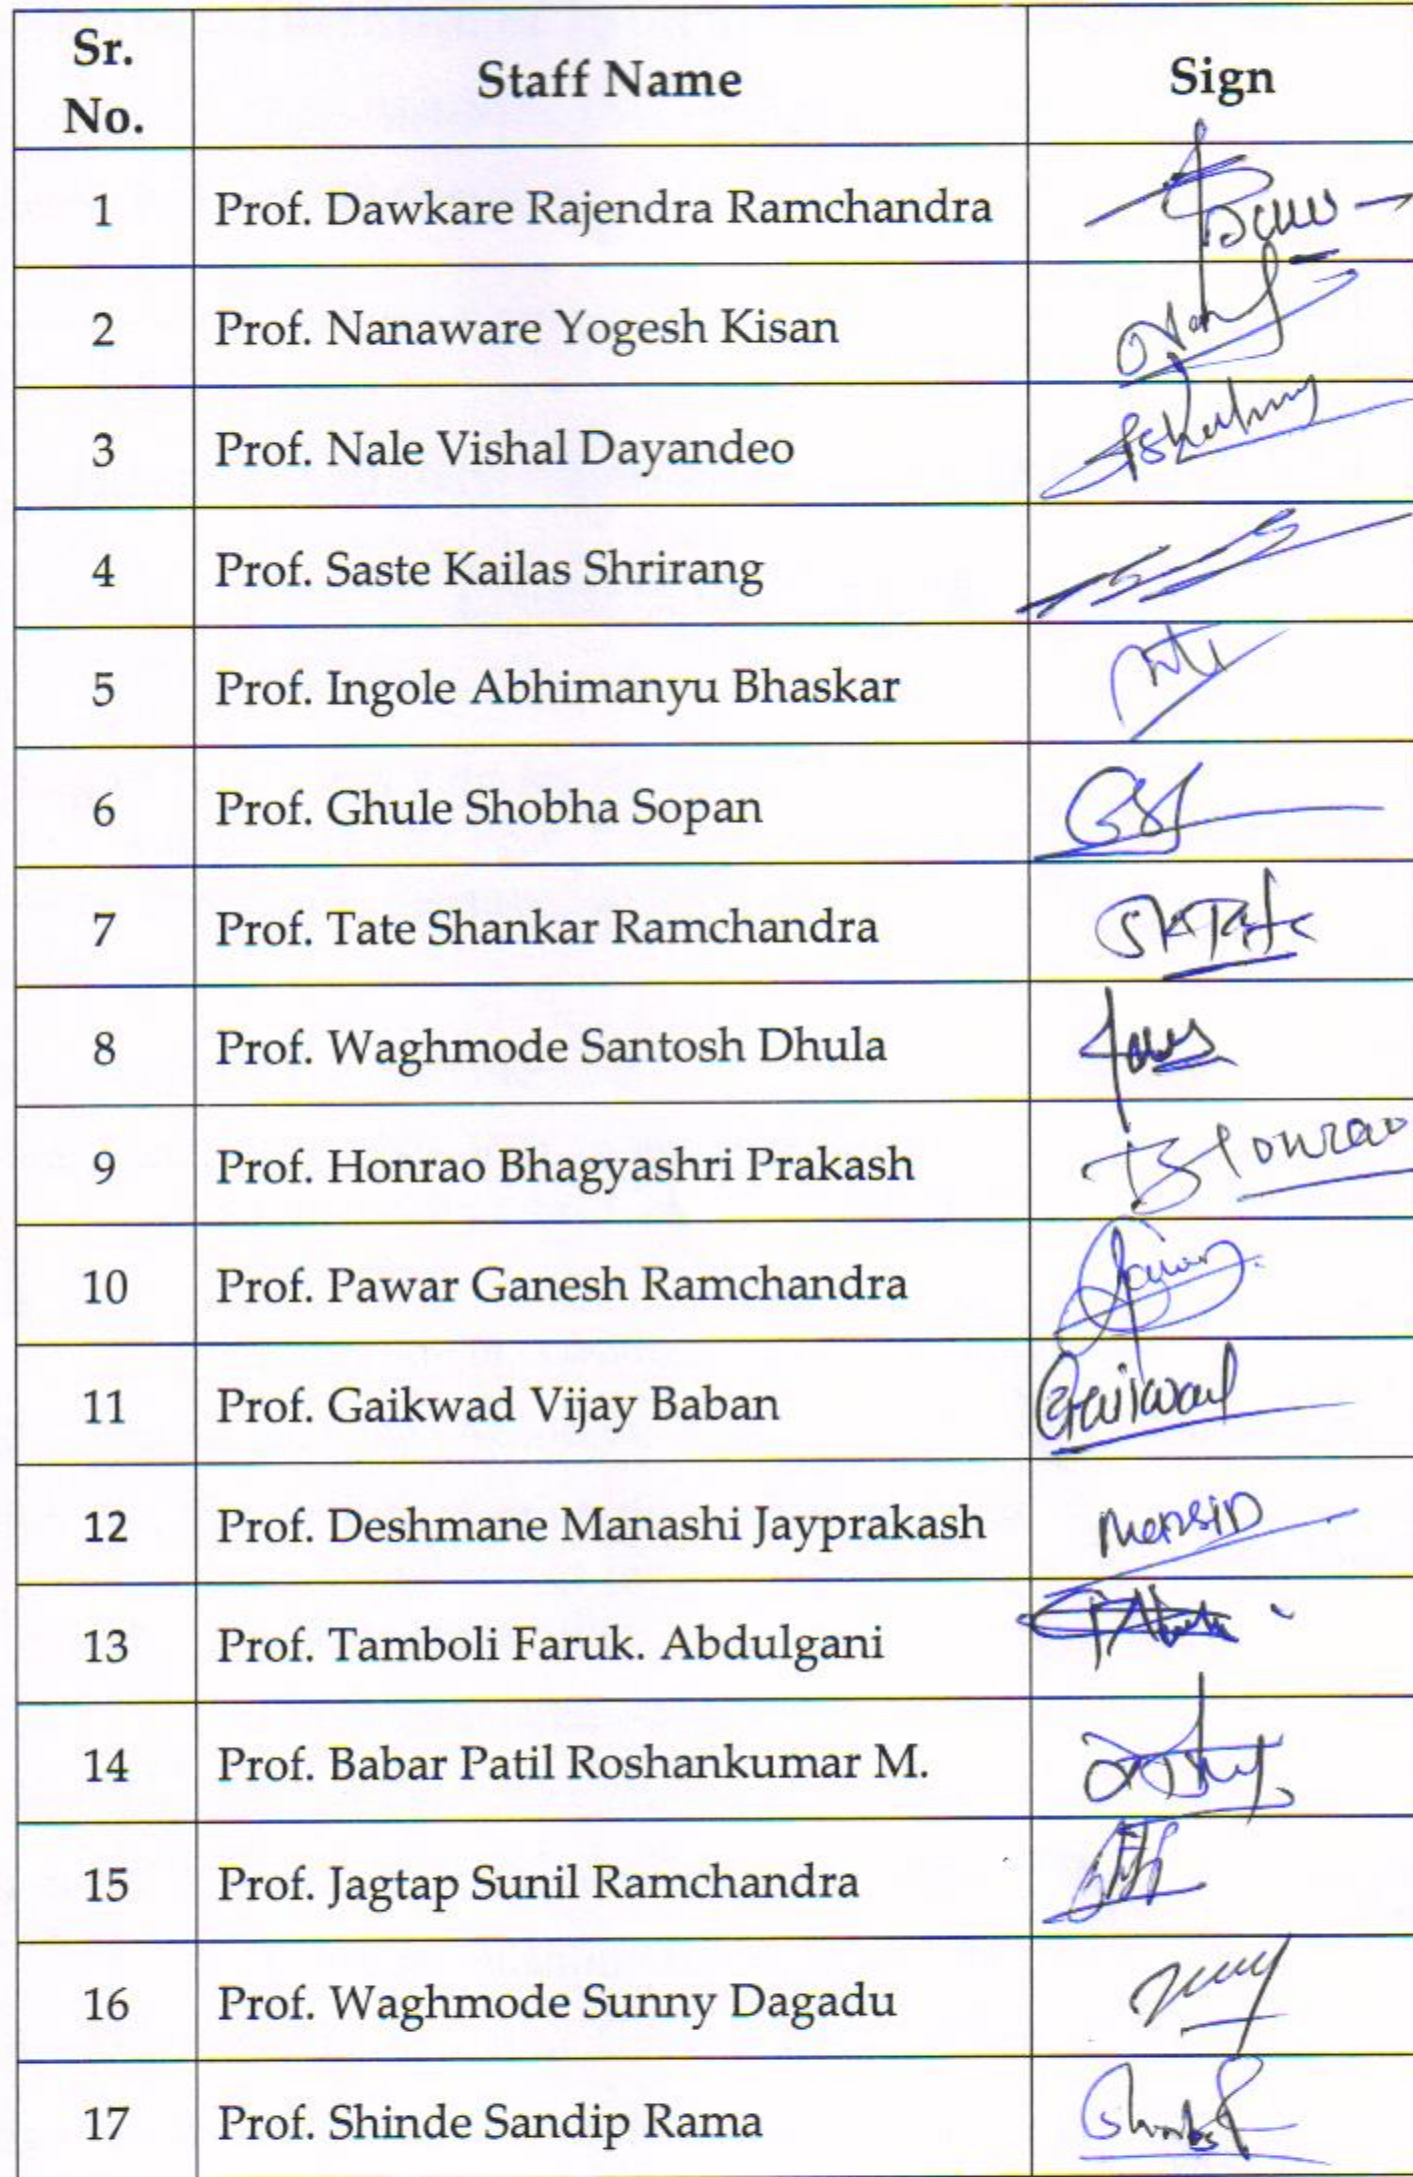 Sr. No. Staff Name Sign
1 Prof. Dawkare Rajendra Ramchandra
2 Prof. Nanaware Yogesh Kisan
3 Prof. Nale Vishal Dayandeo
4 Prof. Saste Kailas Shrirang
5 Prof. Ingole Abhimanyu Bhaskar
6 Prof. Ghule Shobha Sopan
7 Prof. Tate Shankar Ramchandra
8 Prof. Waghmode Santosh Dhula
9 Prof. Honrao Bhagyashri Prakash
10 Prof. Pawar Ganesh Ramchandra
11 Prof. Gaikwad Vijay Baban
12 Prof. Deshmane Manashi Jayprakash
13 Prof. Tamboli Faruk. Abdulgani
14 Prof. Babar Patil Roshankumar M.
15 Prof. Jagtap Sunil Ramchandra
16 Prof. Waghmode Sunny Dagadu
17 Prof. Shinde Sandip Rama